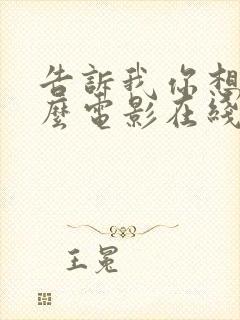 告訴我你想
麼電影在綫
王冕